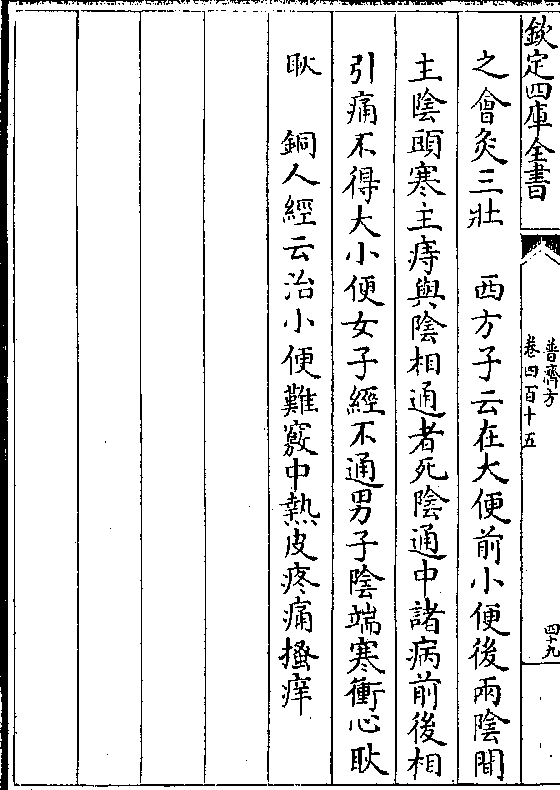 欽定四庫全書
普濟方
卷四百十五
四十九
之會灸三壯　西方子云在大便前小便後兩陰間
主陰頭寒主痔與陰相通者死陰通中諸病前後相
引痛不得大小便女子經不通男子陰端寒衝心耿
耿　銅人經云治小便難竅中熱皮疼痛搔痒